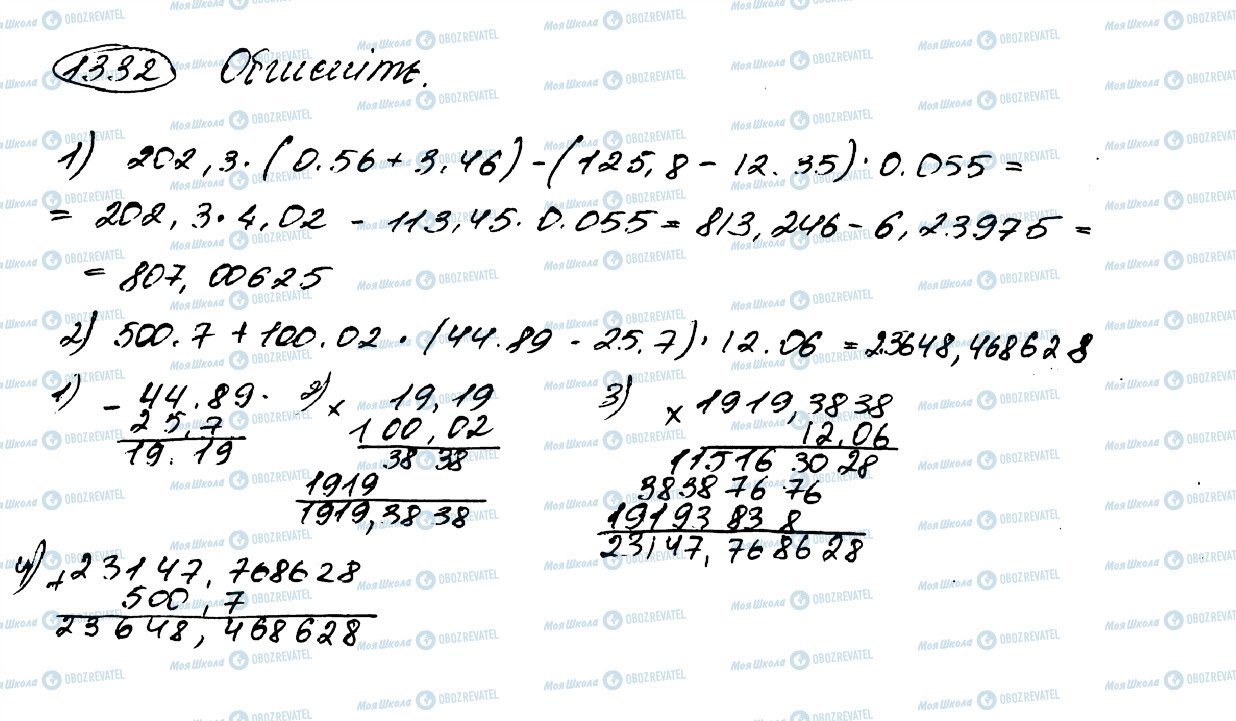 1332 Обчисліть.
1) 202,3·(0.56+3.46)-(125,8-12.35)·0.055=
=202,3·4,02-113,45·0.055=813,246-6,23975=
=807,00625
2) 500.7+100.02·(44.89-25.7)·12.06=23648,468628
1) -44.89
25,7
19.19
2) × 19,19
100,02
3838
1919
1919,3838
3) ×1919,3838
12,06
115163028
38387676
19193838
23147,768628
4) +23147,768628
500,7
23648,468628